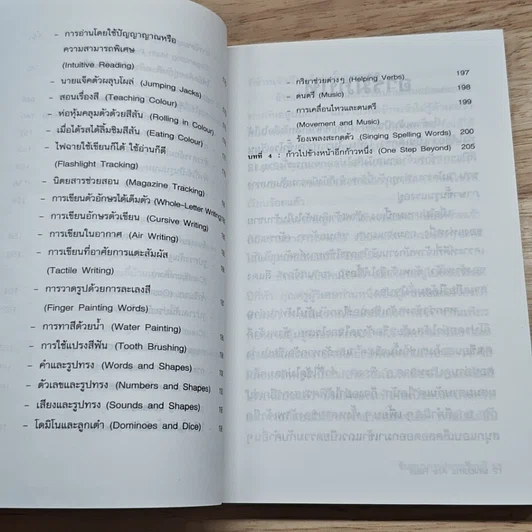 - การอ่านโดยใช้ปัญญาญาณหรือ
ความสามารถพิเศษ
(Intuitive Reading)
- นายแจ๊คตัวผลุบโผล่ (Jumping Jacks)
- สอนเรื่องสี (Teaching Colour)
- ห่อหุ้มคลุมตัวด้วยสีสัน (Rolling in Colour)
- เมื่อได้รสได้ลิ้มชิมสีสัน (Eating Colour)
- ไฟฉายใช้เขียนก็ได้ ใช้อ่านก็ดี
(Flashlight Tracking)
- นิตยสารช่วยสอน (Magazine Tracking)
- การเขียนตัวอักษรได้เต็มตัว (Whole-Letter Writing)
- การเขียนอักษรตัวเขียน (Cursive Writing)
- การเขียนในอากาศ (Air Writing)
- การเขียนที่อาศัยการแตะสัมผัส
(Tactile Writing)
- การวาดรูปด้วยการละเลงสี
(Finger Painting Words)
- การทาสีด้วยน้ำ (Water Painting)
- การใช้แปรงสีฟัน (Tooth Brushing)
- คำและรูปทรง (Words and Shapes)
- ตัวเลขและรูปทรง (Numbers and Shapes)
- เสียงและรูปทรง (Sounds and Shapes)
- โดมิโนและลูกเต๋า (Dominoes and Dice)
- กริยาช่วยต่างๆ (Helping Verbs) 197
- ดนตรี (Music) 198
- การเคลื่อนไหวและดนตรี 199
(Movement and Music)
ร้องเพลงสะกดตัว (Singing Spelling Words) 200
บทที่ 4 : ก้าวไปข้างหน้าอีกก้าวหนึ่ง (One Step Beyond) 205